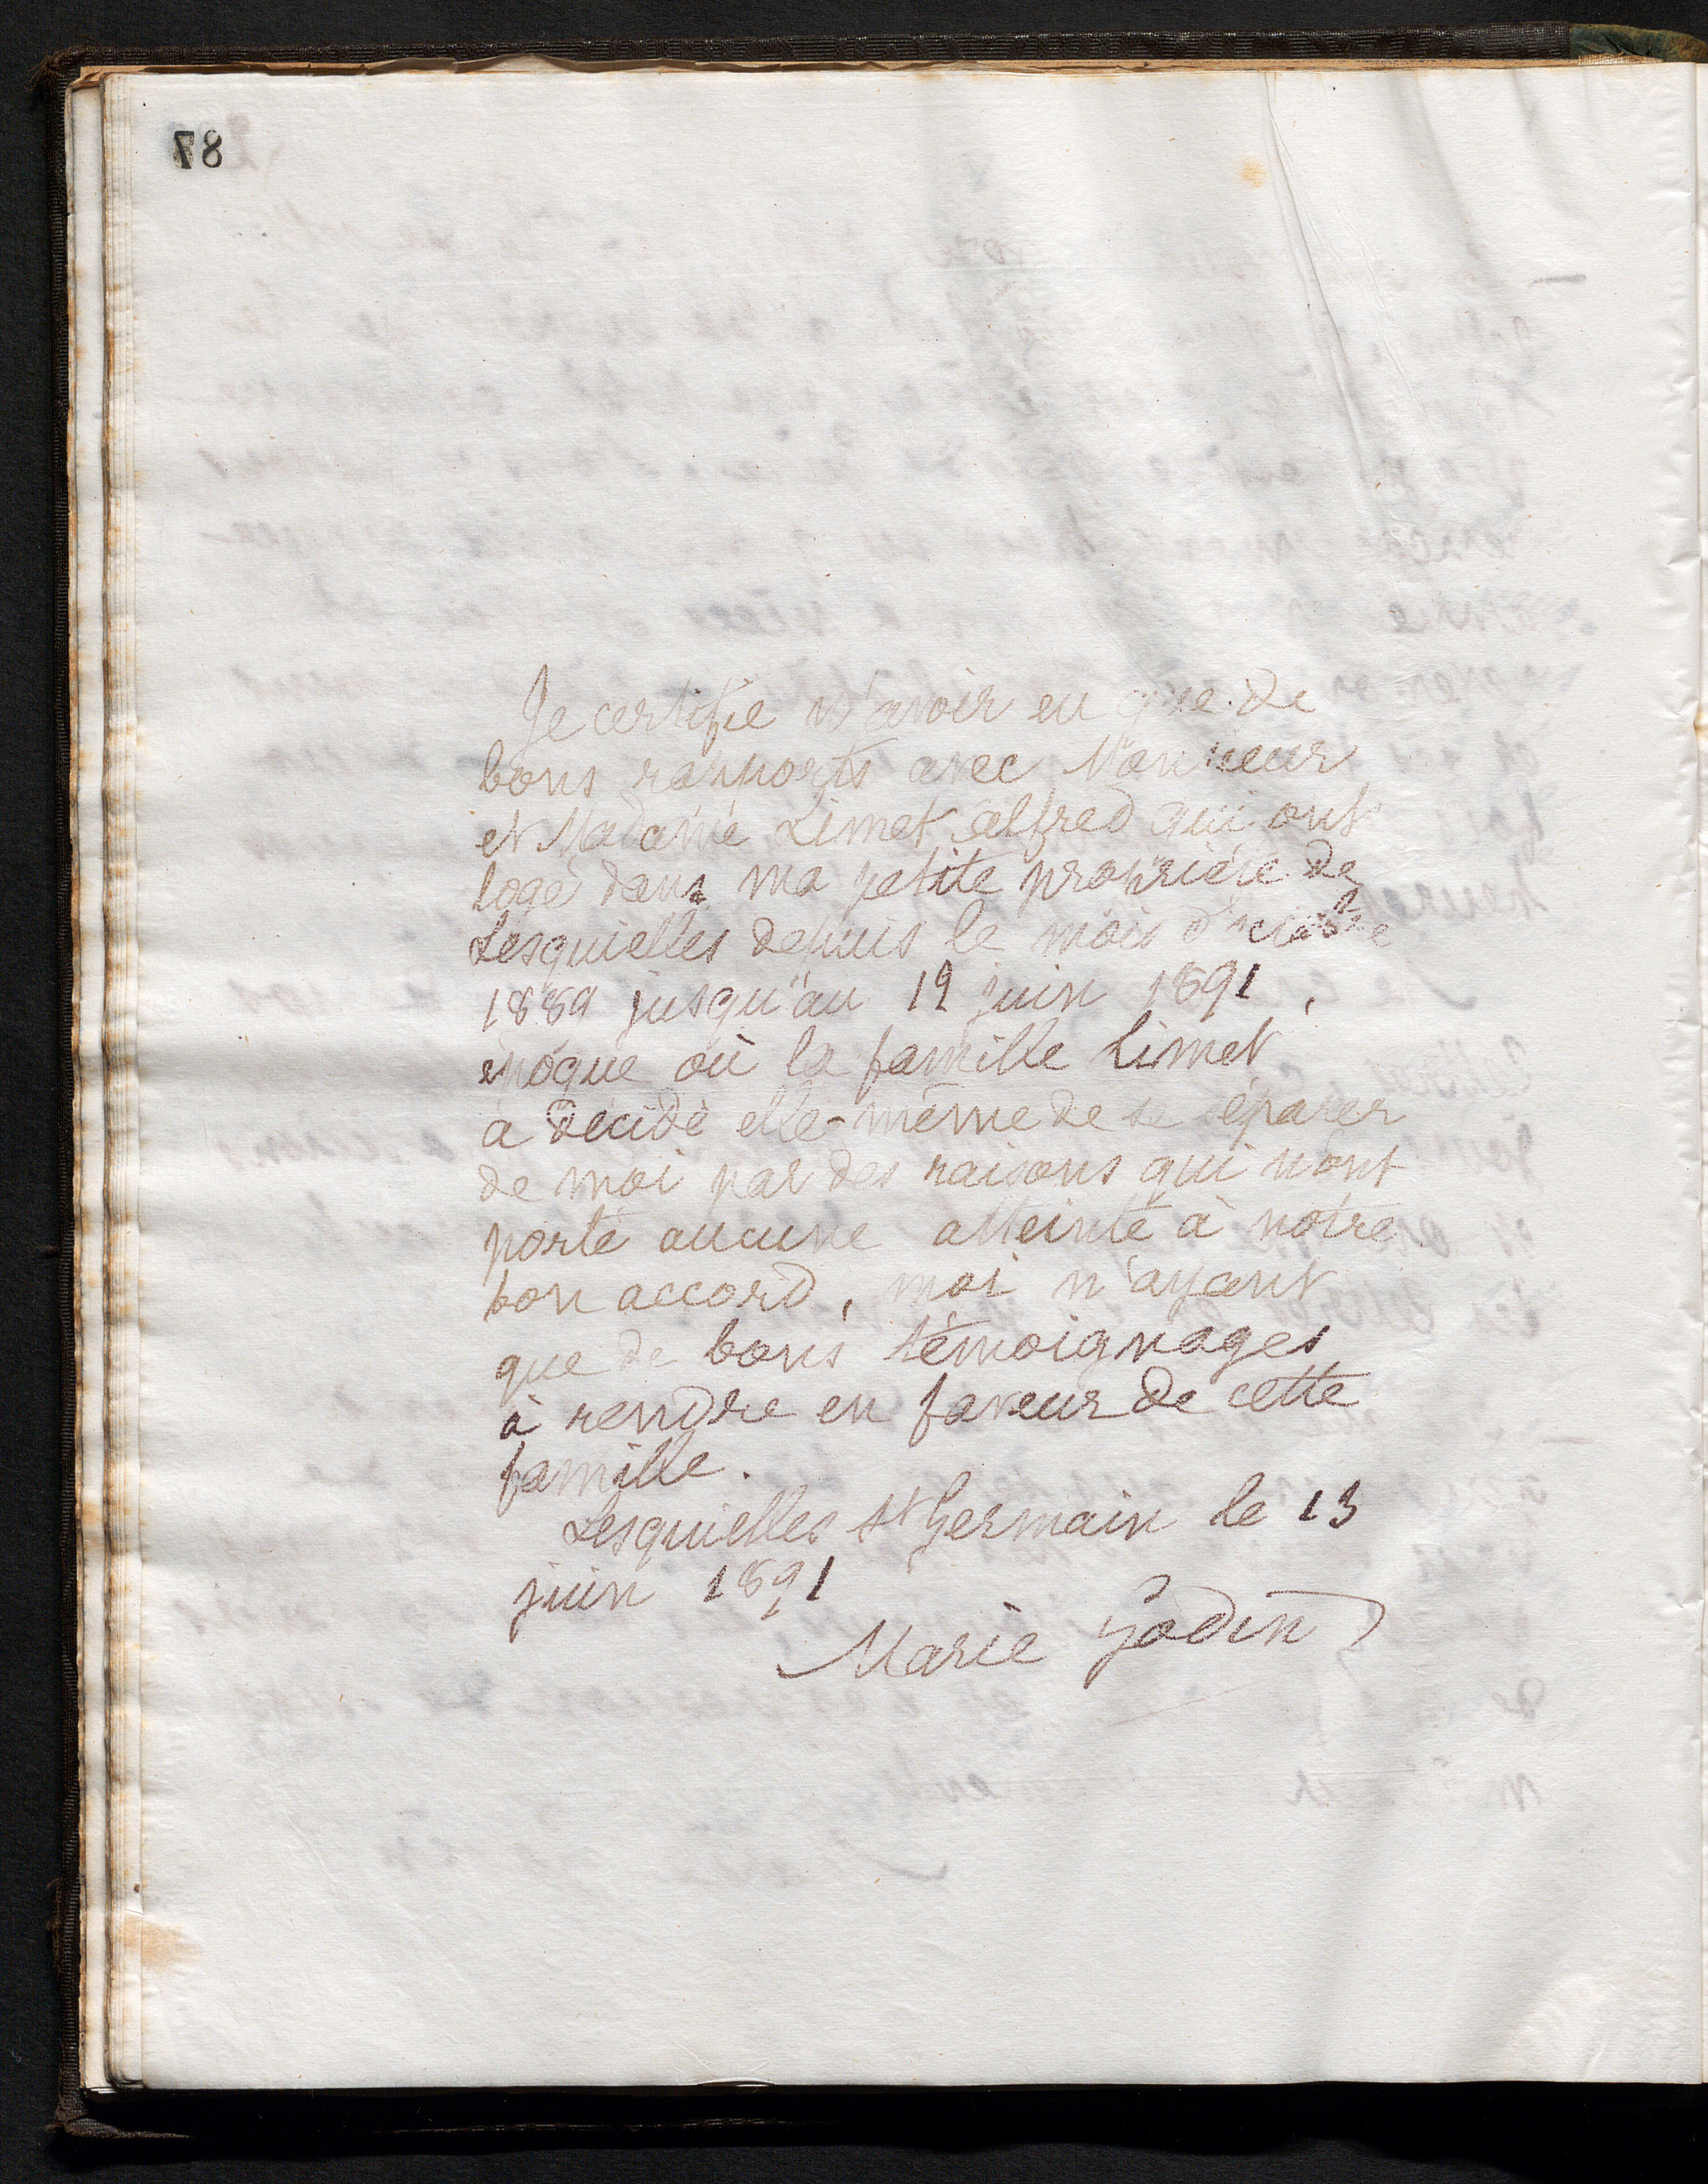 87
Je certifie n'avoir eu que de
bons rapports avec Monsieur
et Madame Limet alfred qui ont
logé dans ma petite propriété de
Lesquielles depuis le mois d'octobre
1889 jusqu'au 12 juin 1891,
époque où la famille Limet
a décidé elle-même de se séparer
de moi par des raisons qui n'ont
porté aucune atteinte à notre
bon accord, moi n'ayant
que de bons témoignages
à rendre en faveur de cette
famille.
Lesquielles St Germain le 13
juin 1891
Marie Godin